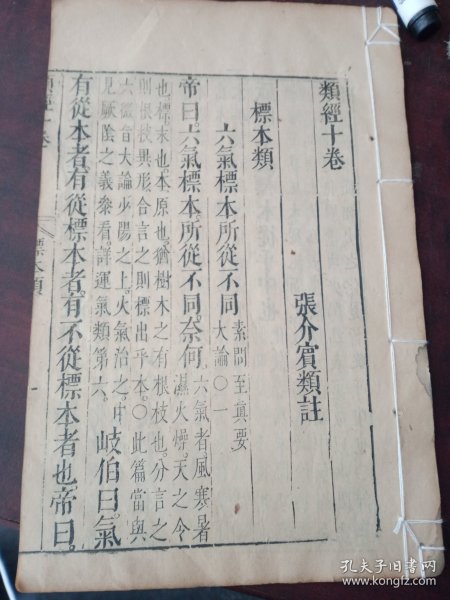 類經十卷
張介賓類註
標本類
六氣標本所從不同 素問至真要
大論〇一
帝曰六氣標本所從不同奈何 六氣者風寒暑
濕火燥天之令
也標末也本原也猶樹木之有根枝也分言之
則根枝異形合言之則標出乎本〇此篇當與
六微旨大論少陽之上火氣治之中
見厥陰之義參看詳運氣類第六 岐伯曰氣
有從本者有從標本者有不從標本者也帝曰
類經十卷
標本類
孔夫子旧书网
www.kongfz.com